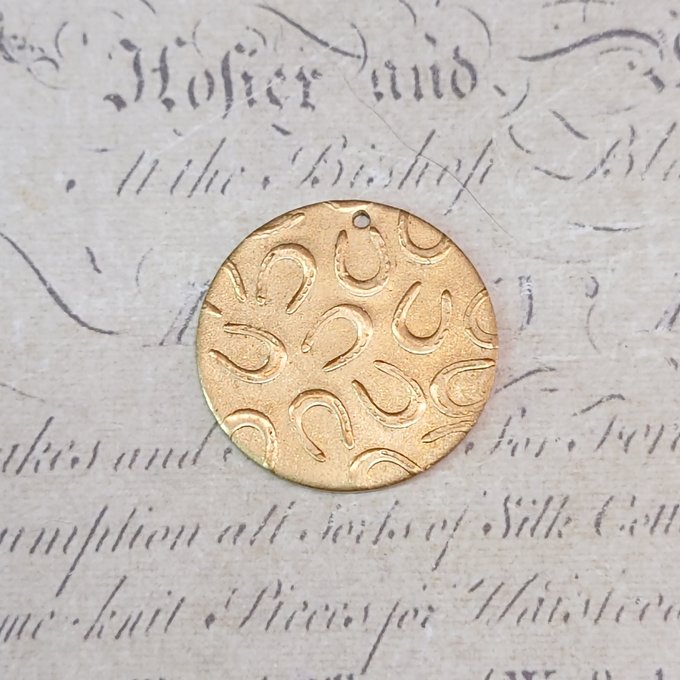 Hosier and
the Bishop Bla
akes and For
umption all Sorts of Silk Cott
me-knit Pieces for Waistcoa